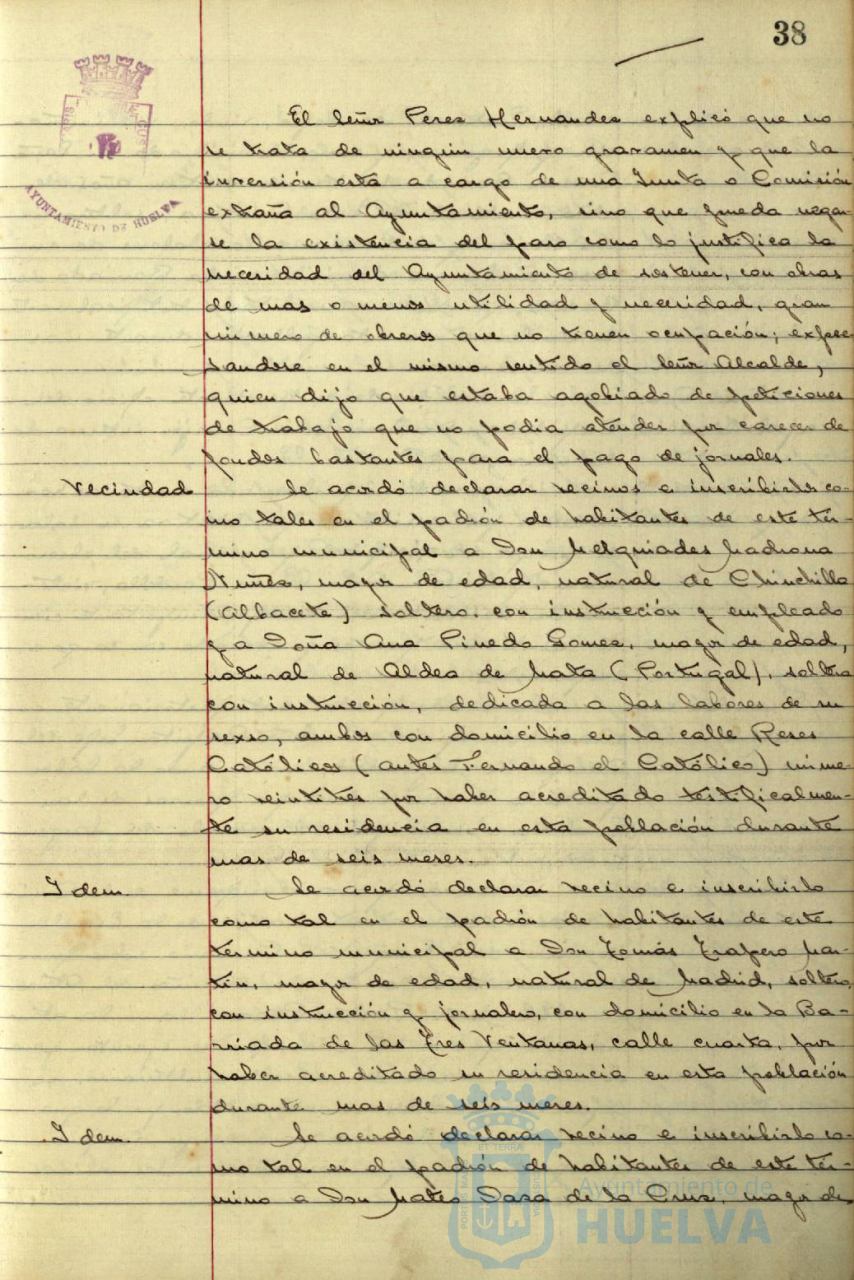 38
AYUNTAMIENTO DE HUELVA
El Señor Perez Hernandez explicó que no
se trata de ningún nuevo gravamen y que la
inversión está a cargo de una Junta o Comisión
extraña al Ayuntamiento, sino que pueda negar-
se la existencia del paro como lo justifica la
necesidad del Ayuntamiento de sostener, con obras
de mas o menos utilidad y necesidad, gran
número de obreros que no tienen ocupación; expre-
sandose en el mismo sentido el Señor Alcalde,
quien dijo que estaba agobiado de peticiones
de trabajo que no podia atender por carecer de
fondos bastantes para el pago de jornales.
Vecindad
Se acordó declarar vecinos e inscribirlos co-
mo tales en el padrón de habitantes de este tér-
mino municipal a Don Melquiades Madrona
Nuñez, mayor de edad, natural de Chinchilla
(Albacete) soltero, con instrucción y empleado
y a Doña Ana Pinedo Gomez, mayor de edad,
natural de Aldea de Mata (Portugal), soltera
con instrucción, dedicada a las labores de su
sexso, ambos con domicilio en la calle Reyes
Católicos (antes Fernando el Católico) núme-
ro veintitres por haber acreditado testificalmen-
te su residencia en esta población durante
mas de seis meses.
Idem.
Se acordó declarar vecino e inscribirlo
como tal en el padrón de habitantes de este
término municipal a Don Tomás Trapero Mar-
tin, mayor de edad, natural de Madrid, soltero,
con instrucción y jornalero, con domicilio en la Ba-
rriada de las Tres Ventanas, calle cuarta, por
haber acreditado su residencia en esta población
durante mas de seis meses.
Idem.
Se acordó declarar vecino e inscribirlo co-
mo tal en el padrón de habitantes de este tér-
mino a Don Mateo Daza de la Cruz, mayor de
Ayuntamiento de
HUELVA